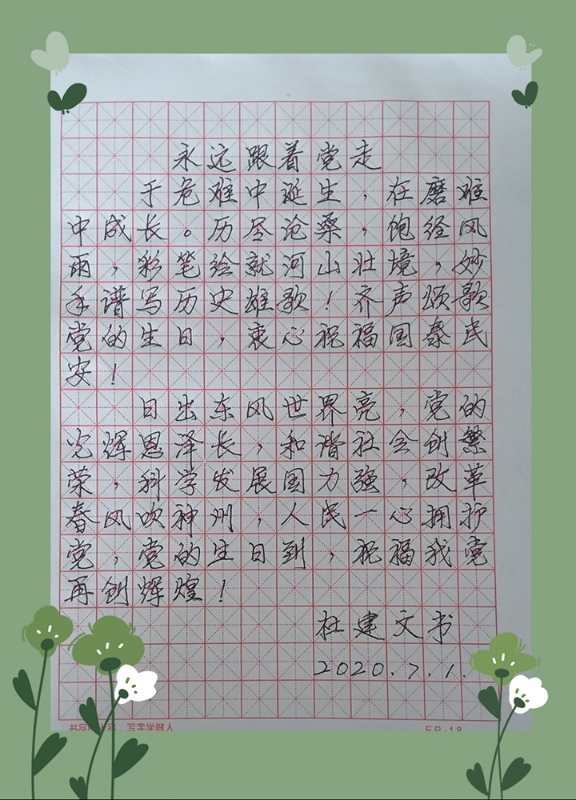 永远跟着党走
于危难中诞生，在磨难
中成长。历尽沧桑，饱经风
雨，彩笔绘就河山壮境，妙
手谱写历史雄歌！齐声颂歌
党的生日，衷心祝福国泰民
安！
日出东风世界亮，党的
光辉恩泽长，和谐社会创繁
荣，科学发展国力强，改革
春风吹神州，人民一心拥护
党，党的生日到，祝福我党
再创辉煌！
杜建文书
2020.7.1.